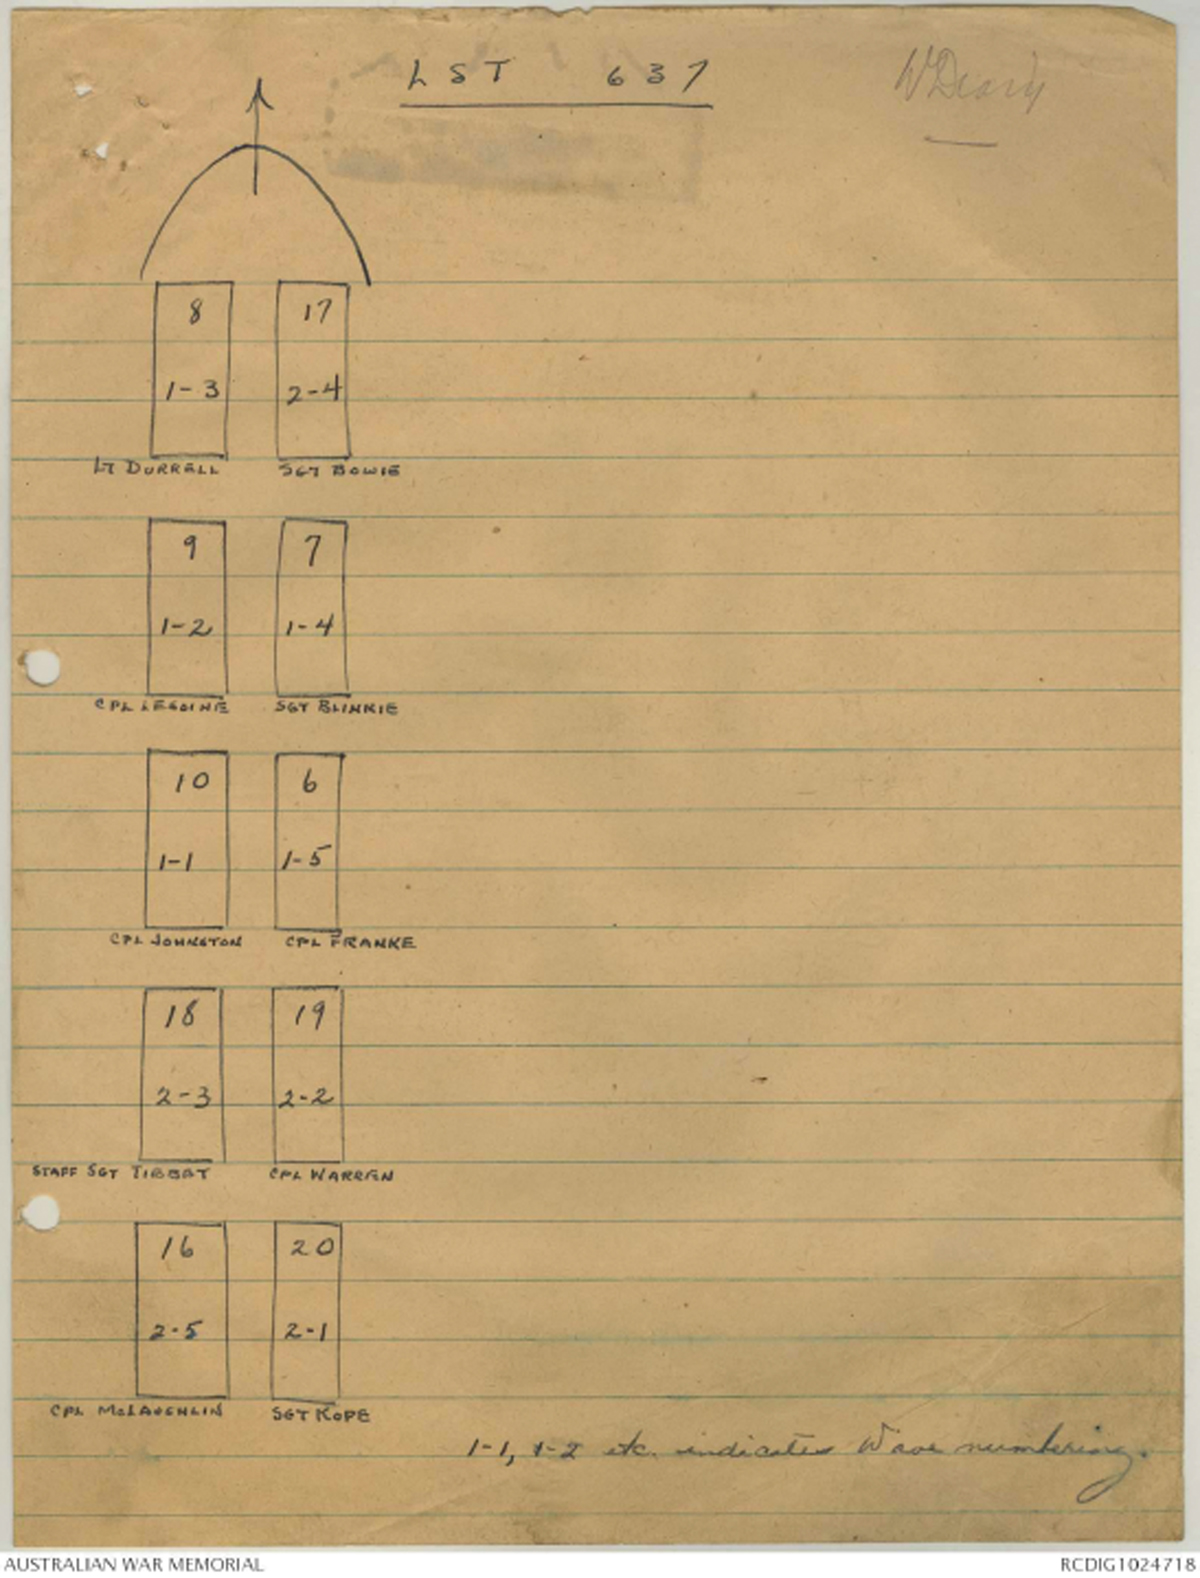 LST 637
W Diary
8 17
1-3 2-4
LT DURRELL SGT BOWIE
9 7
1-2 1-4
CPL LEGOINE SGT BLINKIE
10 6
1-1 1-5
CPL JOHNSTON CPL FRANKE
18 19
2-3 2-2
STAFF SGT TIBBET CPL WARREN
16 20
2-5 2-1
CPL McLAUGHLIN SGT KOPE
1-1, 1-2 etc. indicates Wave numbering.
AUSTRALIAN WAR MEMORIAL RCDIG1024718